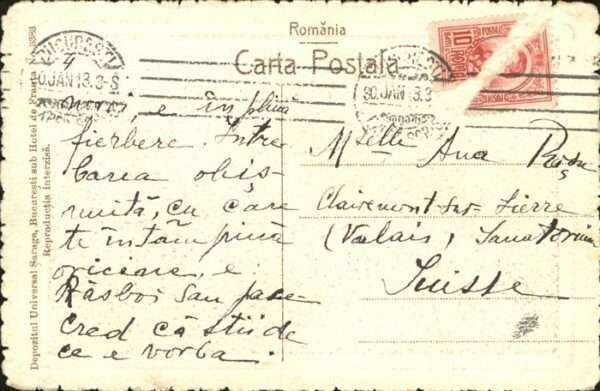 România
Carta Postala
BUCURESTI
30.JAN 13.3-S
30.JAN 13.3
10 BANI 10
POSTA
Depozitul Universal Saraga, Bucuresti sub Hotel de France
Reproducția interzisă.
e în plină
fierbere. Între
barea obiș-
nuită, cu care
te întâmpină
oricine, e
Răsboi sau pace
Cred că știi de
ce e vorba.
Mselle Ana Roșu
Clairemont-sur-Sierre
(Valais, Sanatorium
Suisse